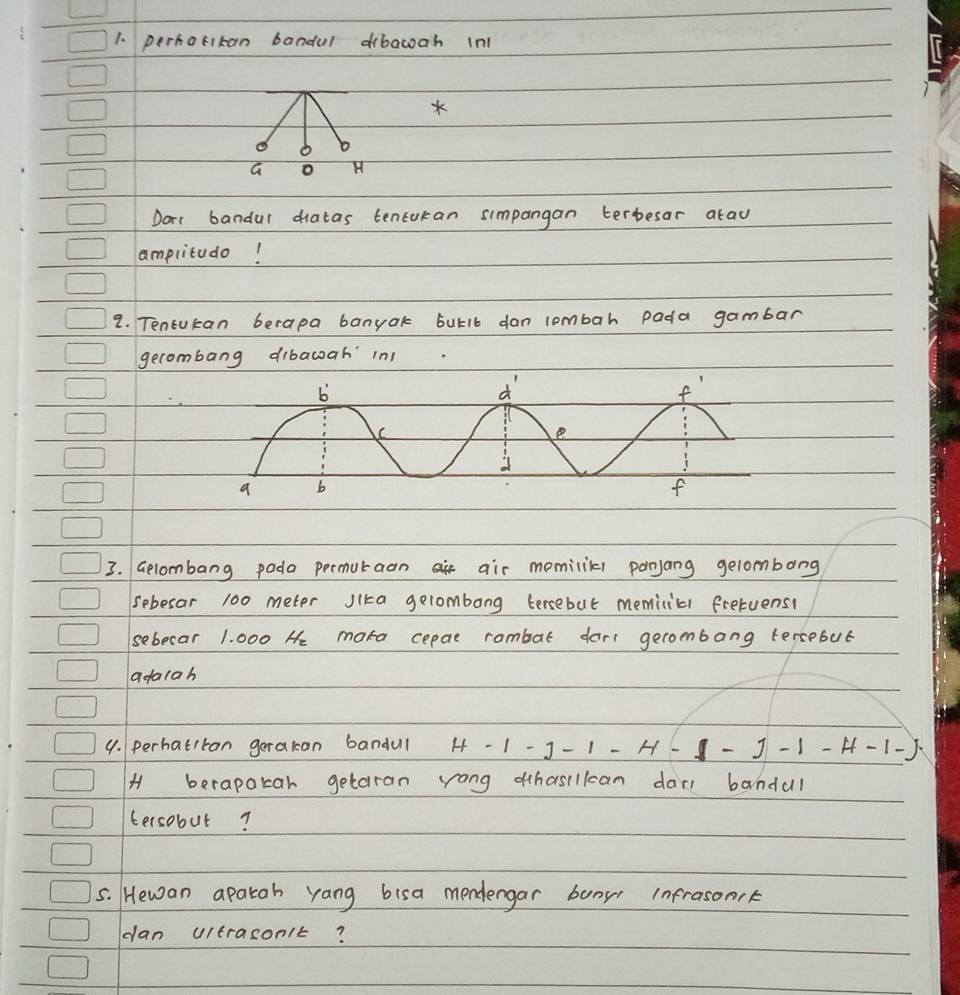 1. perhatikan bandul dibawah ini
*
G O H
Dari bandul diatas tentukan simpangan terbesar atau
amplitudo !
2. Tentukan berapa banyak bukit dan lembah pada gambar
gerombang dibawah ini .
b' d' f'
c e
d
a b f
3. Gelombang pada permukaan air memiliki panjang gelombang
sebesar 100 meter Jika gelombang tersebut memiliki frekuensi
sebesar 1.000 Hz maka cepat rambat dari gerombang tersebut
adalah
4. perhatikan gerakan bandul H - I - J - I - H - I - J - I - H - I - J.
H berapakah getaran yang dihasilkan dari bandul
tersebut ?
5. Hewan apakah yang bisa mendengar bunyi infrasonik
dan ultrasonik ?